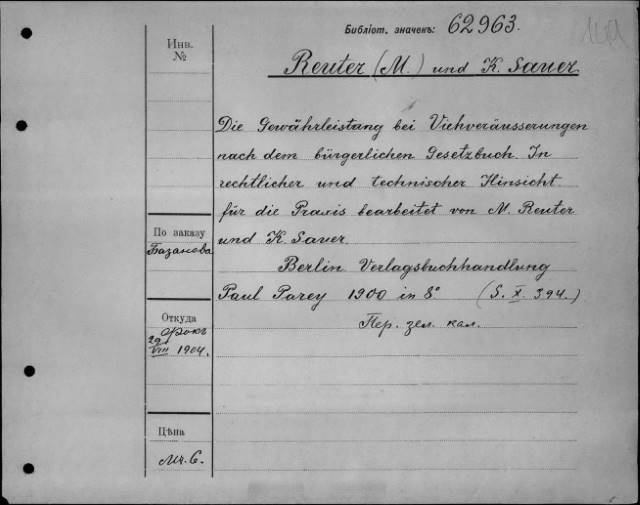 Библіот. значекъ: 62963.
Инв.
№
Reuter (M.) und K. Sauer
Die Gewährleistang bei Viehveräusserungen
nach dem bürgerlichen Gesetzbuch. In
rechtlicher und technischer Hinsicht
für die Praxis bearbeitet von M. Reuter
und K. Sauer.
Berlin Verlagsbuchhandlung
Paul Parey 1900 in 8° (S. X. 394.)
Пер. зел. кал.
По заказу
Базанова
Откуда
Фокъ
29
VIII 1904.
Цѣна
Мк. 6.